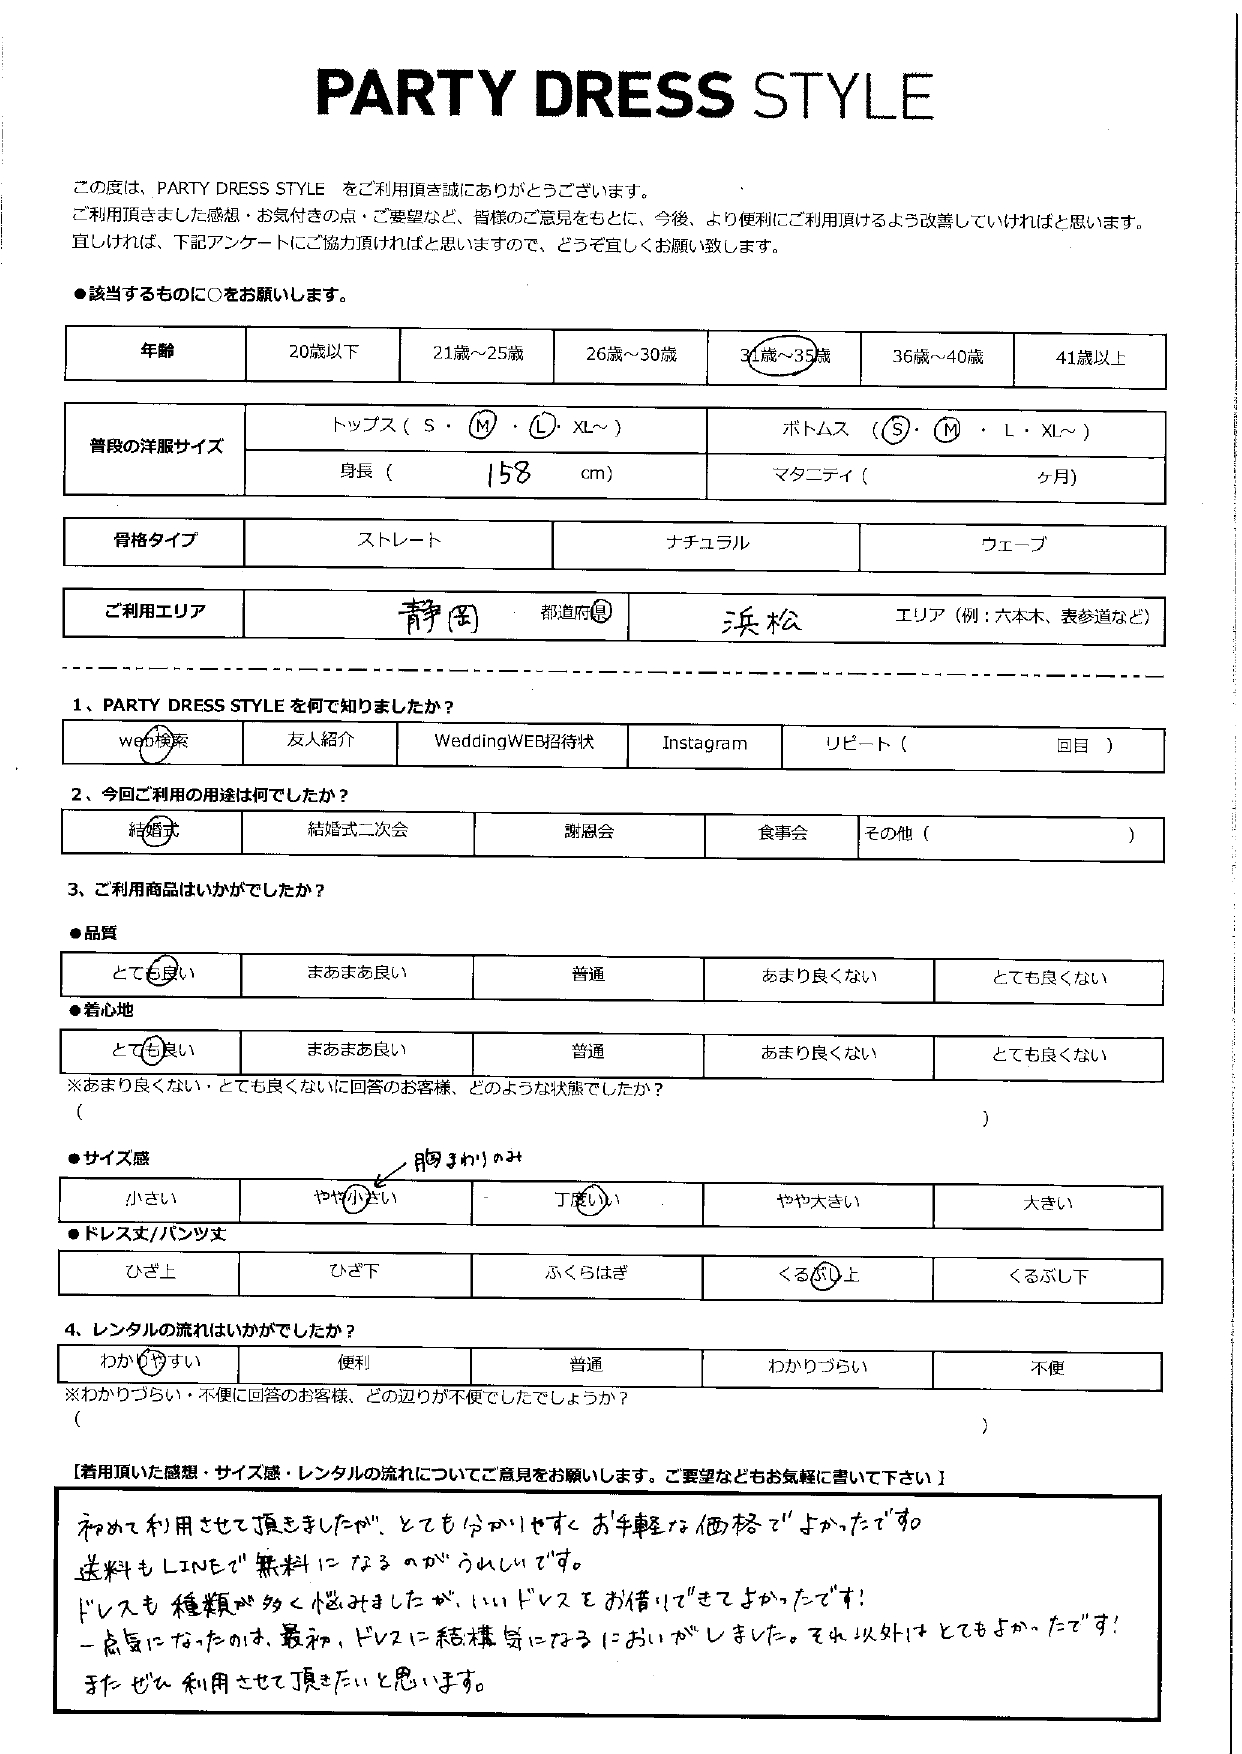 PARTY DRESS STYLE
この度は、PARTY DRESS STYLE をご利用頂き誠にありがとうございます。
ご利用頂きました感想・お気付きの点・ご要望など、皆様のご意見をもとに、今後、より便利にご利用頂けるよう改善していければと思います。
宜しければ、下記アンケートにご協力頂ければと思いますので、どうぞ宜しくお願い致します。
●該当するものに○をお願いします。
年齢 20歳以下 21歳～25歳 26歳～30歳 31歳～35歳 36歳～40歳 41歳以上
普段の洋服サイズ トップス ( S ・ M ・ L ・ XL～ ) ボトムス ( S ・ M ・ L ・ XL～ )
身長 ( 158 cm) マタニティ ( ヶ月)
骨格タイプ ストレート ナチュラル ウェーブ
ご利用エリア 静岡 都道府県 浜松 エリア（例：六本木、表参道など）
1、PARTY DRESS STYLE を何で知りましたか？
web検索 友人紹介 WeddingWEB招待状 Instagram リピート ( 回目 )
2、今回ご利用の用途は何でしたか？
結婚式 結婚式二次会 謝恩会 食事会 その他 ( )
3、ご利用商品はいかがでしたか？
●品質
とても良い まあまあ良い 普通 あまり良くない とても良くない
●着心地
とても良い まあまあ良い 普通 あまり良くない とても良くない
※あまり良くない・とても良くないに回答のお客様、どのような状態でしたか？
( )
●サイズ感 胸まわりのみ
小さい やや小さい 丁度いい やや大きい 大きい
●ドレス丈/パンツ丈
ひざ上 ひざ下 ふくらはぎ くるぶし上 くるぶし下
4、レンタルの流れはいかがでしたか？
わかりやすい 便利 普通 わかりづらい 不便
※わかりづらい・不便に回答のお客様、どの辺りが不便でしたでしょうか？
( )
[着用頂いた感想・サイズ感・レンタルの流れについてご意見をお願いします。ご要望などもお気軽に書いて下さい ]
初めて利用させて頂きましたが、とても分かりやすくお手軽な価格でよかったです。
送料もLINEで無料になるのがうれしいです。
ドレスも種類が多く悩みましたが、いいドレスをお借りできてよかったです！
一点気になったのは、最初、ドレスに結構気になるにおいがしました。それ以外はとてもよかったです！
またぜひ利用させて頂きたいと思います。